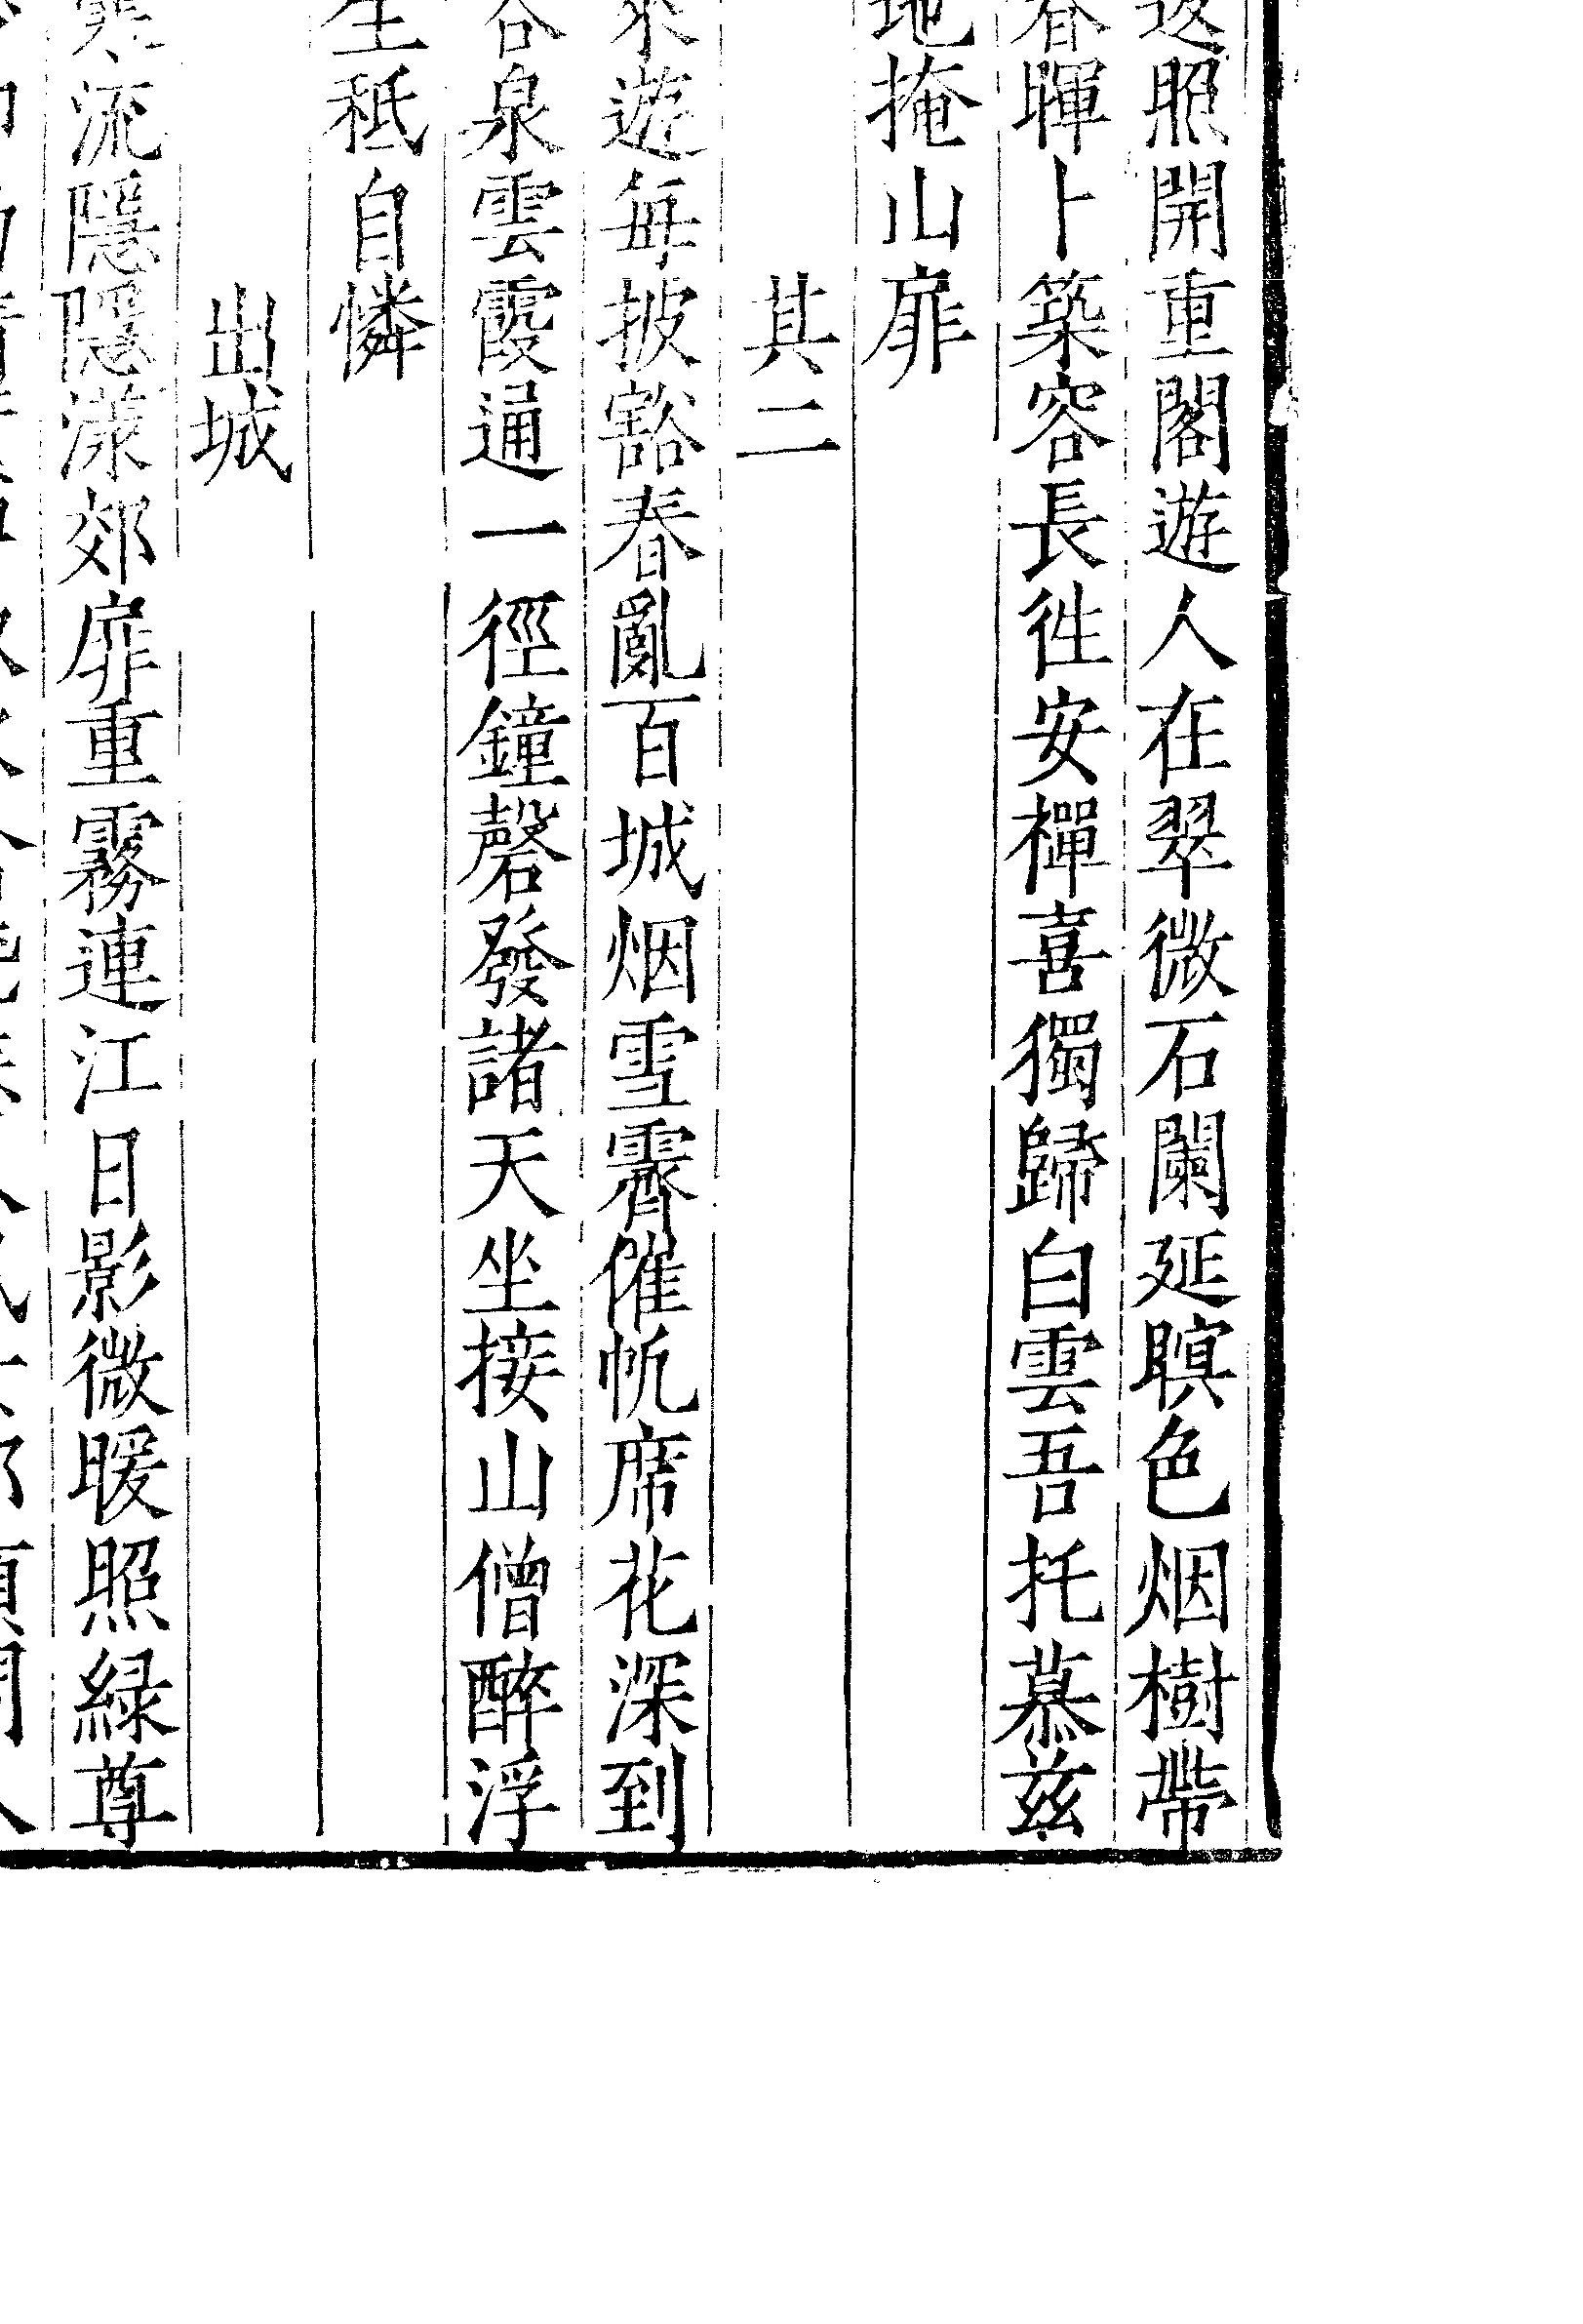 返照開重閣遊人在翠微石闌延暝色烟樹帶
春暉卜築容長徃安禪喜獨歸白雲吾托慕茲
地掩山扉
其二
來遊每披豁春亂百城烟雪霽催帆席花深到
谷泉雲霞通一徑鐘磬發諸天坐接山僧醉浮
生秪自憐
出城
寒流隱隱漾郊扉重霧連江日影微暖照緑尊